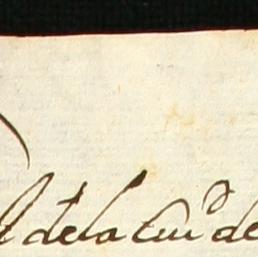 de la Ciuᵈ de